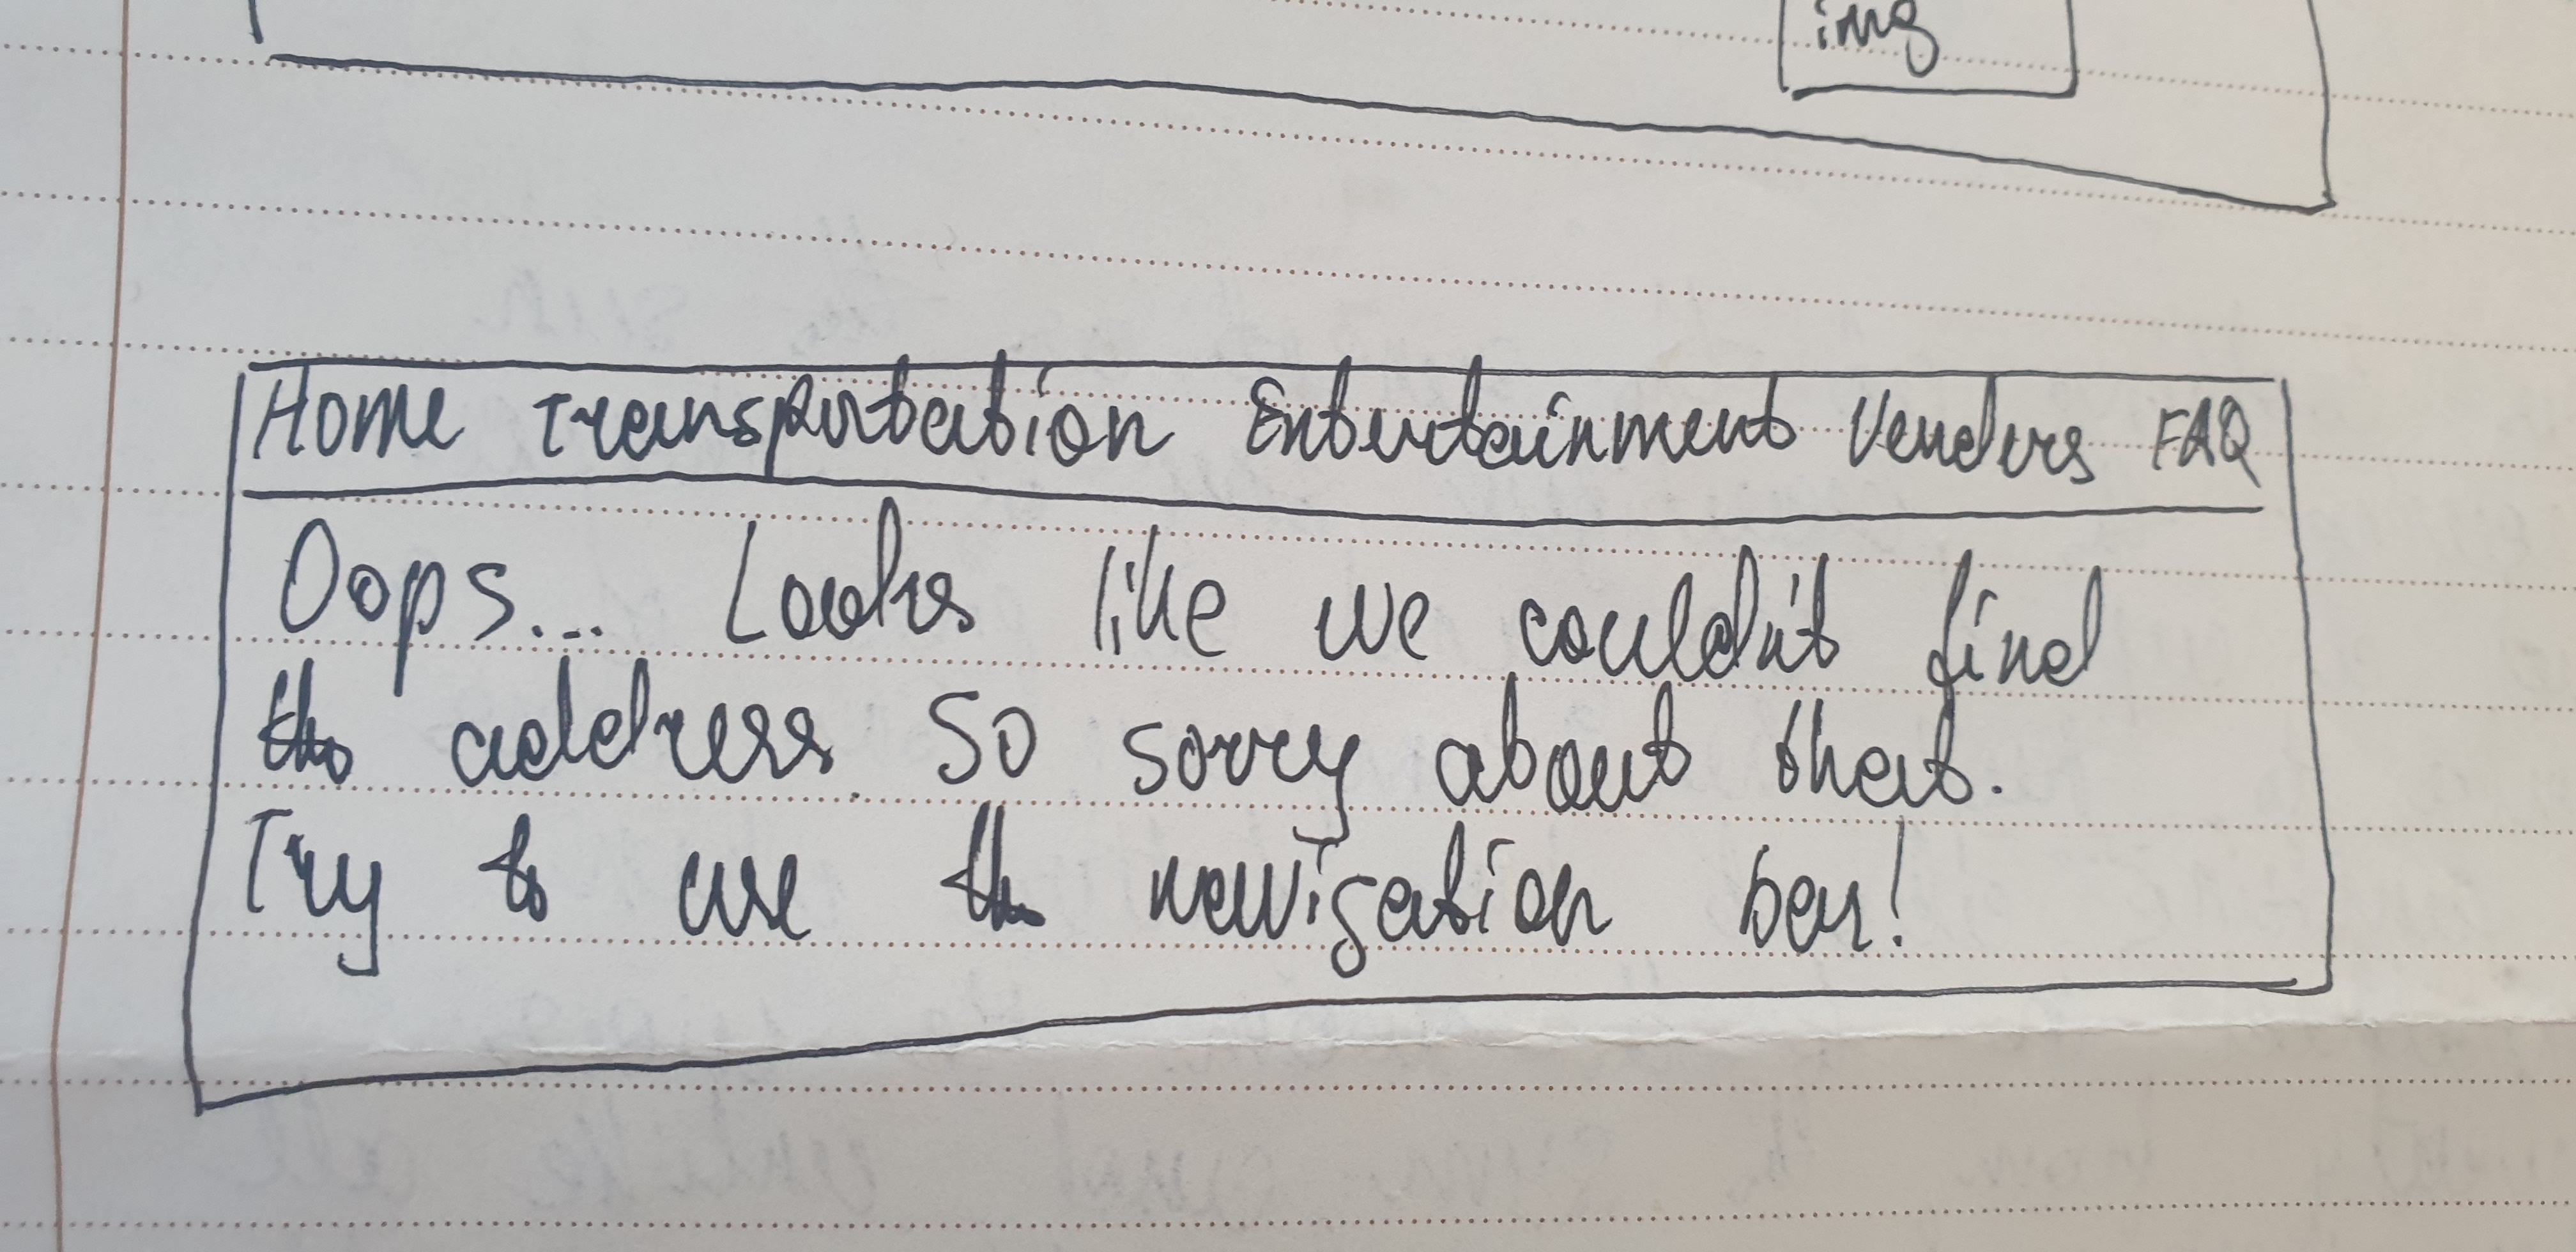 img
Home Transportation Entertainment Venders FAQ
Oops... Looks like we couldn't find
the address. So sorry about that.
Try to use the navigation bar!